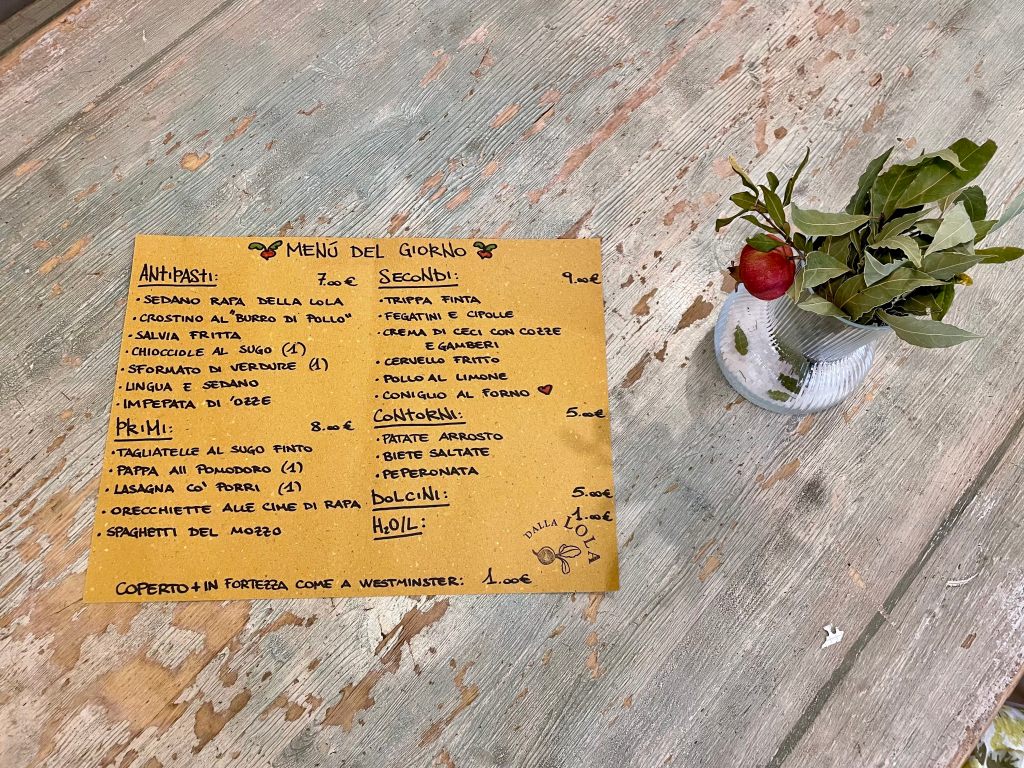 MENÚ DEL GIORNO
ANTIPASTI: 7.00€
• SEDANO RAPA DELLA LOLA
• CROSTINO AL "BURRO DI POLLO"
• SALVIA FRITTA
• CHIOCCIOLE AL SUGO (1)
• SFORMATO DI VERDURE (1)
• LINGUA E SEDANO
• IMPEPATA DI 'OZZE
PRIMI: 8.00€
• TAGLIATELLE AL SUGO FINTO
• PAPPA All POMODORO (1)
• LASAGNA CO' PORRI (1)
• ORECCHIETTE ALLE CIME DI RAPA
• SPAGHETTI DEL MOZZO
SECONDI: 9.00€
• TRIPPA FINTA
• FEGATINI E CIPOLLE
• CREMA DI CECI CON COZZE
E GAMBERI
• CERVELLO FRITTO
• POLLO AL LIMONE
• CONIGLIO AL FORNO
CONTORNI: 5.00€
• PATATE ARROSTO
• BIETE SALTATE
• PEPERONATA
DOLCINI: 5.00€
H2O/L: 1.00€
DALLA LOLA
COPERTO + IN FORTEZZA COME A WESTMINSTER: 1.00€